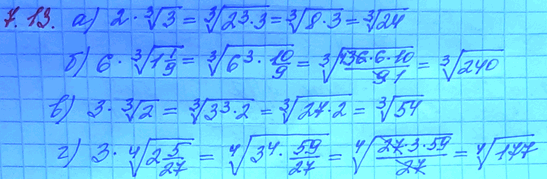 7.13. а) 2 · ∛3 = ∛(2³·3) = ∛(8·3) = ∛24
б) 6 · ∛(1 1/9) = ∛(6³ · 10/9) = ∛(36·6·10/9 1) = ∛240
в) 3 · ∛2 = ∛(3³·2) = ∛(27·2) = ∛54
г) 3 · ∜(2 5/27) = ∜(3⁴ · 59/27) = ∜(27·3·59/27) = ∜177